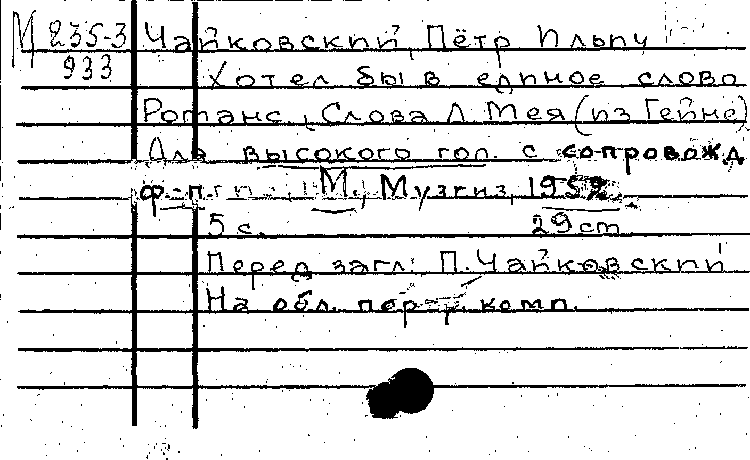 М 235-3 Чайковский, Пётр Ильич
933 Хотел бы в единое слово
Романс. Слова Л. Мея (из Гейне)
Для высокого гол. с сопровожд
ф-п. М., Музгиз, 1959
5 с. 29 cm
Перед загл.: П. Чайковский
На обл. комп.